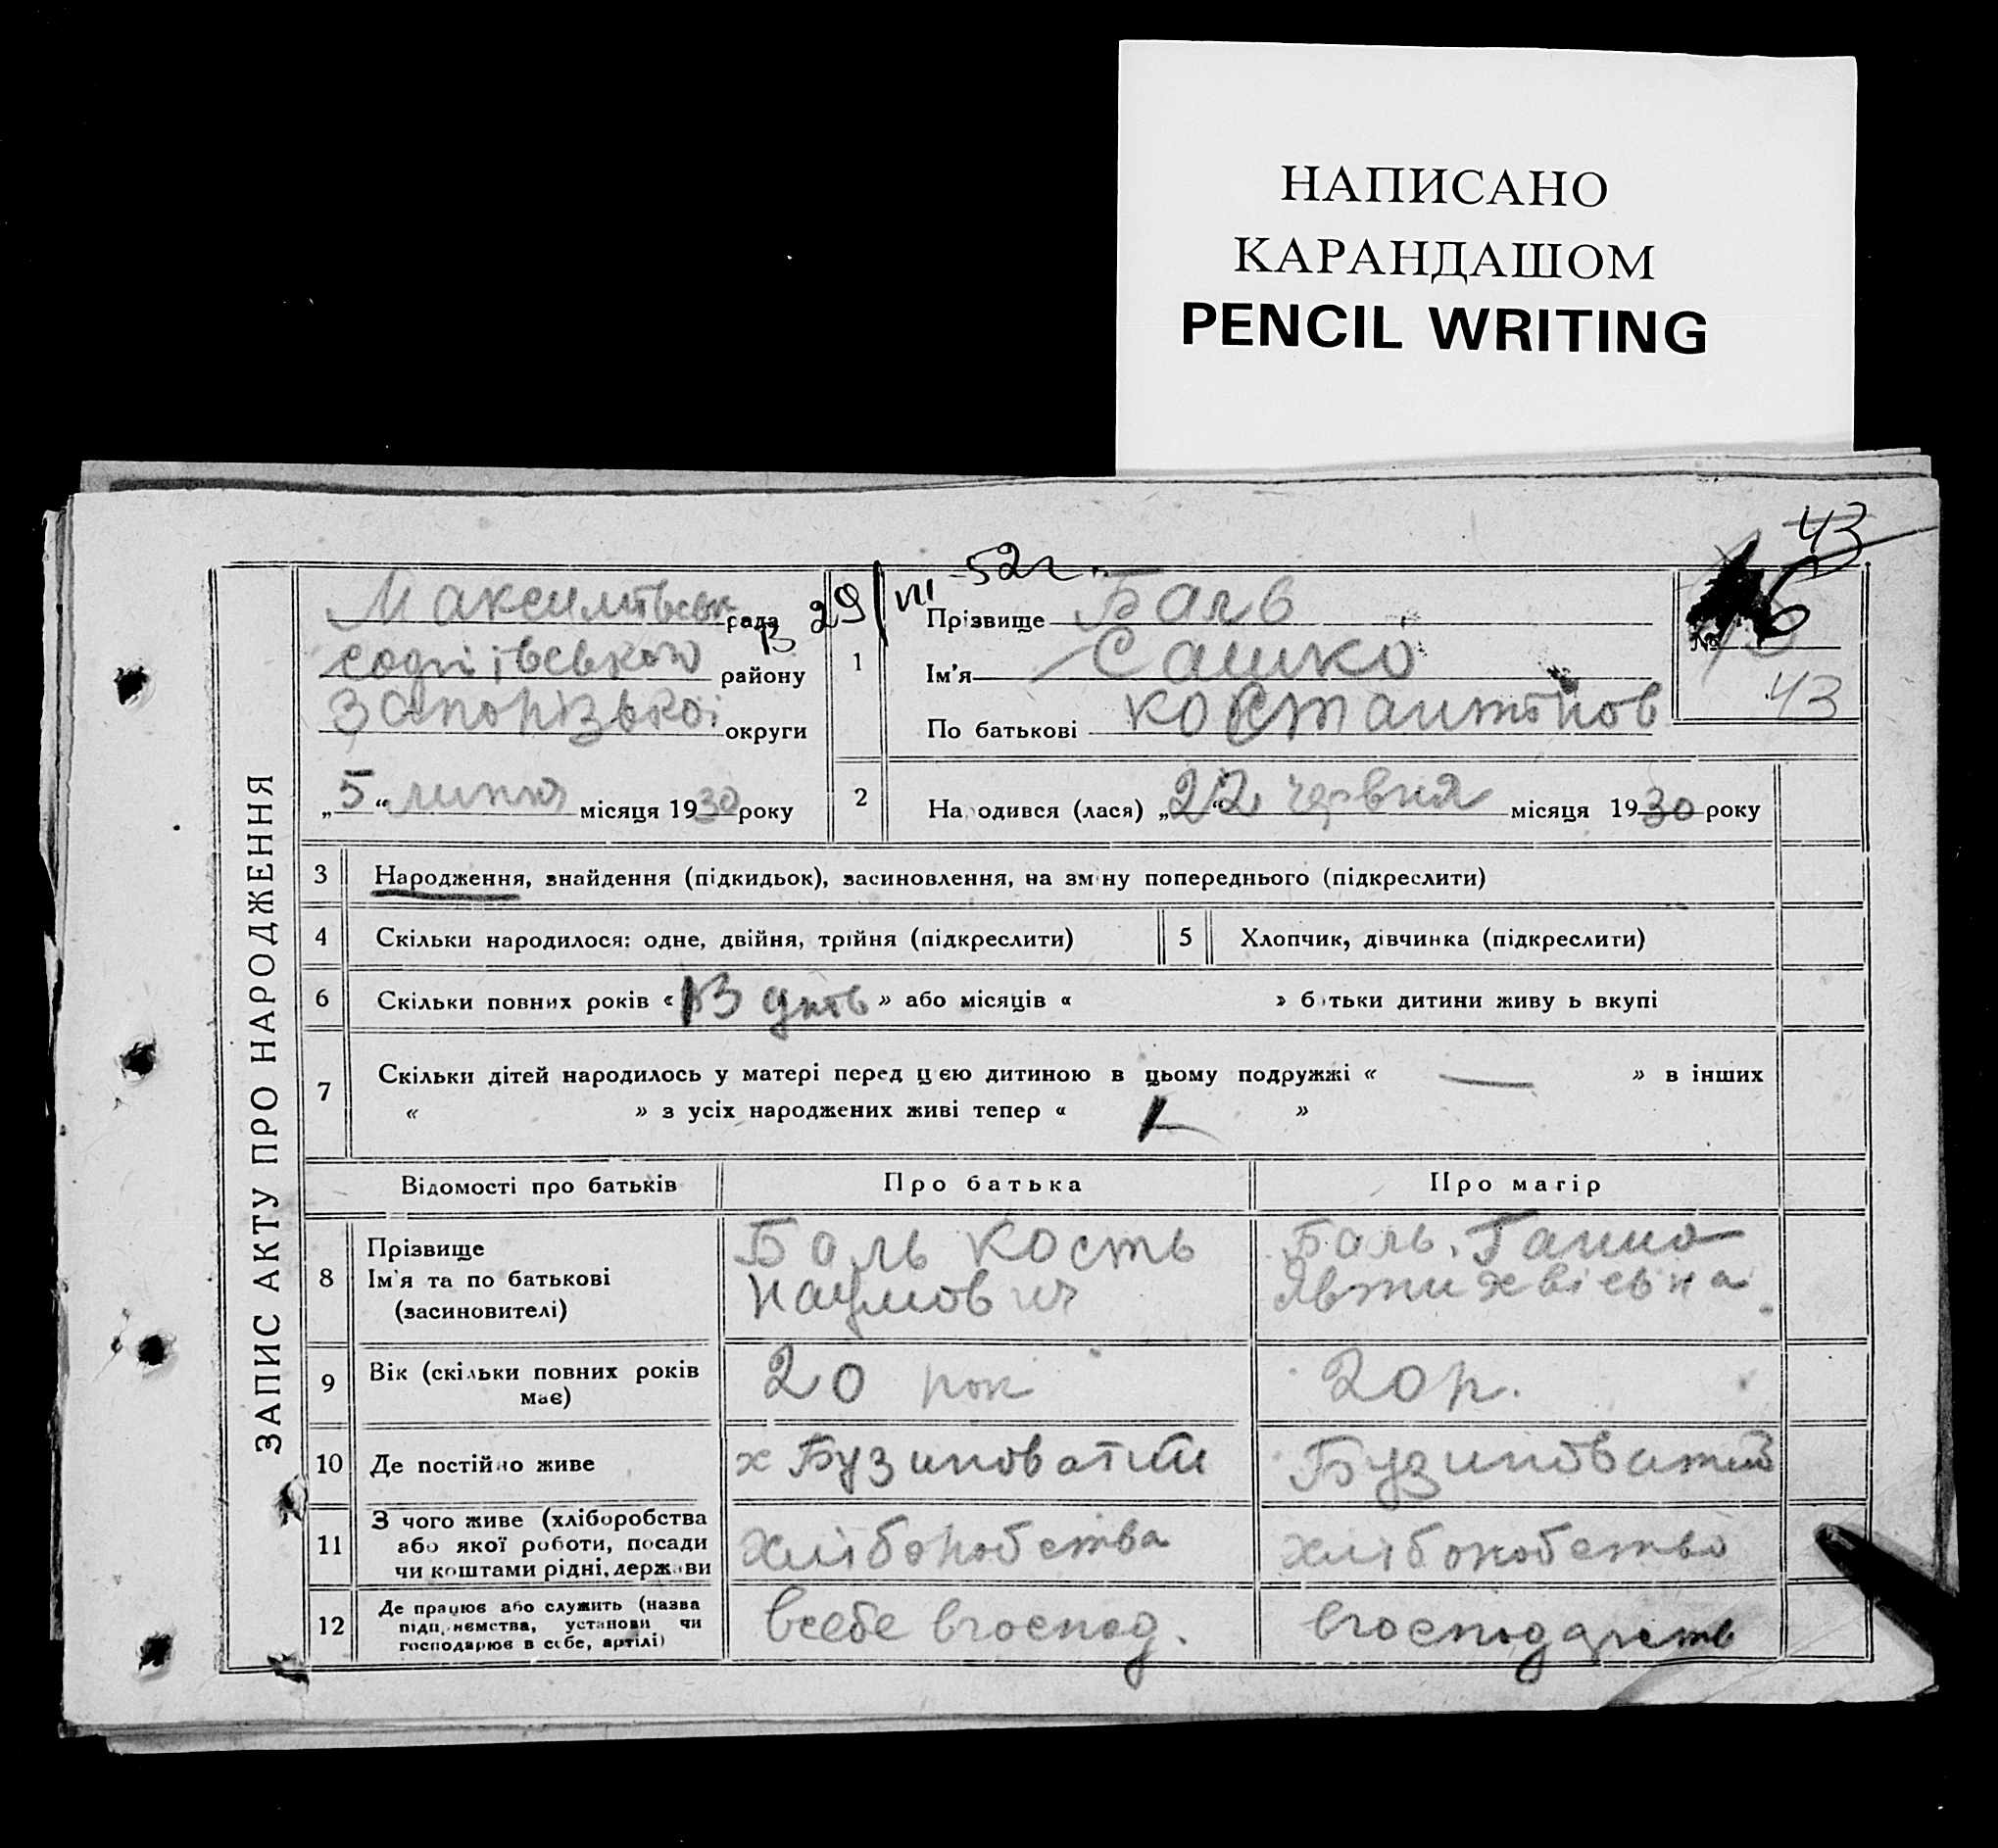 НАПИСАНО
КАРАНДАШОМ
PENCIL WRITING
43
ЗАПИС АКТУ ПРО НАРОДЖЕННЯ
рада
В 29/VIII-52г.
районy
Запорізької округи
„5“ липня місяця 1930 року
1
Прізвище Баль
Ім'я Сашко
По батькові Костантінов
№ 6
43
2
На одився (лася) „22“ червня місяця 1930 року
3 Народження, знайдення (підкидьок), засиновлення, на зм ну попереднього (підкреслити)
4 Скільки народилося: одне, двійня, трійня (підкреслити)
5 Хлопчик, дівчинка (підкреслити)
6 Скільки повних років « » або місяців « » б тьки дитини живу ь вкупі
7 Скільки дітей народилось у матері перед цією дитиною в цьому подружжі « — » в інших
« » з усіх народжених живі тепер « »
Відомості про батьків
Про батька
Про матір
8 Прізвище
Ім'я та по батькові
(засиновителі)
Баль Кость
Наумович
Баль. Ганна
Явтихвіевна
9 Вік (скільки повних років
має)
20 рок
20 р.
10 Де постійно живе
х Бузиноватий
Бузиноватий
11 З чого живе (хліборобства
або якої роботи, посади
чи коштами рідні, держави
хліборобства
хліборобство
12 Де працює або служить (назва
підп. иємства, установи чи
господарює в себе, артілі)
всебе вгоспод.
вгосподарств